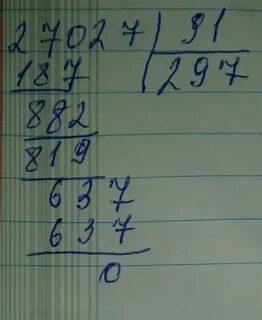 27027 | 91
187 | 297
882
819
637
637
0